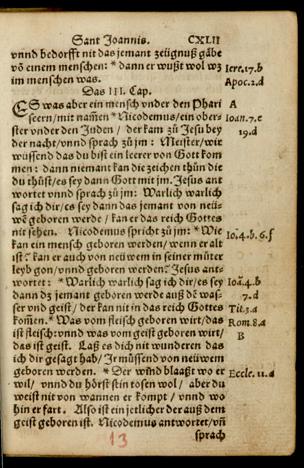 Sant Joannis. CXLII
vnnd bedorfft nit das jemant zeügnuß gäbe
võ einem menschen: * dann er wußt wol wz
im menschen was.
Iere.17.b
Apoc.2.d
Das III. Cap.
ES was aber ein mensch vnder den Phari
seern/mit namẽ * Nicodemus/ein ober-
ster vnder den Juden / der kam zů Jesu bey
der nacht/vnnd sprach zů jm: Meister/wir
wüssend das du bist ein leerer von Gott kom
men: dann niemant kan die zeichen thůn die
du thůst/es sey dann Gott mit jm. Jesus ant
wortet vnnd sprach zů jm: Warlich warlich
sag ich dir/es sey dann das jemant von neü-
wẽ geboren werde / kan er das reich Gottes
nit sehen. Nicodemus spricht zů jm: * Wie
kan ein mensch geboren werden/wenn er alt
ist? kan er auch von neüwem in seiner můter
leyb gon/vnnd geboren werden? Jesus ant-
wortet: * Warlich warlich sag ich dir/es sey
dann dz jemant geboren werde auß dẽ was-
ser vnd geist/ der kan nit in das reich Gottes
kom̃en. * Was vom fleisch geboren wirt/das
ist fleisch: vnnd was vom geist geboren wirt/
das ist geist. Laß es dich nit wunderen das
ich dir gesagt hab/Ir müssend von neüwem
geboren werden. * Der wind blaaßt wo er
wil/ vnnd du hörst sein tosen wol / aber du
weist nit von wannen er kompt / vnnd wo
hin er fart. Also ist ein jetlicher der auß dem
geist geboren ist. Nicodemus antwortet/vñ
sprach
A
Ioan.7.e
19.d
Io.4.b.6.f
Ioã.4.b
7.d
Tit.3.a
Rom.8.a
B
Eccle.11.a
13